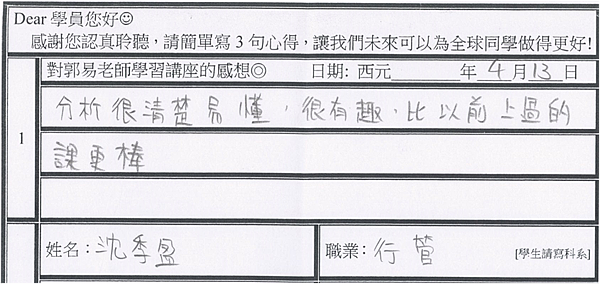 Dear 學員您好☺
感謝您認真聆聽，請簡單寫 3 句心得，讓我們未來可以為全球同學做得更好!
對郭易老師學習講座的感想◎ 日期: 西元______年 4 月 13 日
1
分析很清楚易懂，很有趣，比以前上過的
課更棒
姓名：沈季盈 職業：行管 [學生請寫科系]